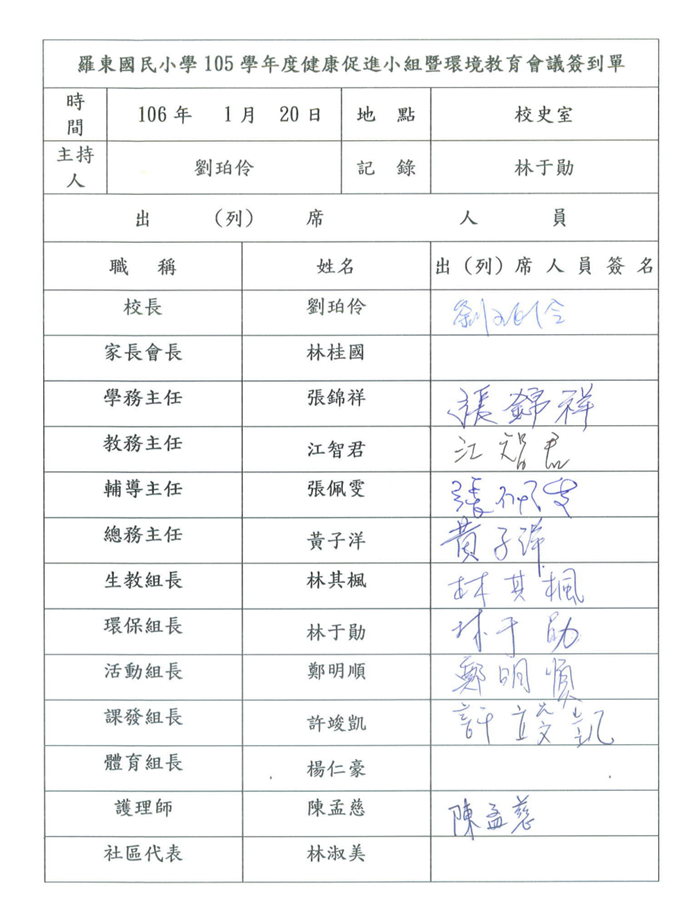 羅東國民小學 105 學年度健康促進小組暨環境教育會議簽到單
時間 106 年 1 月 20 日 地 點 校史室
主持人 劉珀伶 記 錄 林于勛
出 (列) 席 人 員
職 稱 姓名 出 (列) 席 人 員 簽 名
校長 劉珀伶 劉珀伶
家長會長 林桂國
學務主任 張錦祥 張錦祥
教務主任 江智君 江智君
輔導主任 張佩雯 張佩雯
總務主任 黃子洋 黃子洋
生教組長 林其楓 林其楓
環保組長 林于勛 林于勛
活動組長 鄭明順 鄭明順
課發組長 許竣凱 許竣凱
體育組長 楊仁豪
護理師 陳孟慈 陳孟慈
社區代表 林淑美